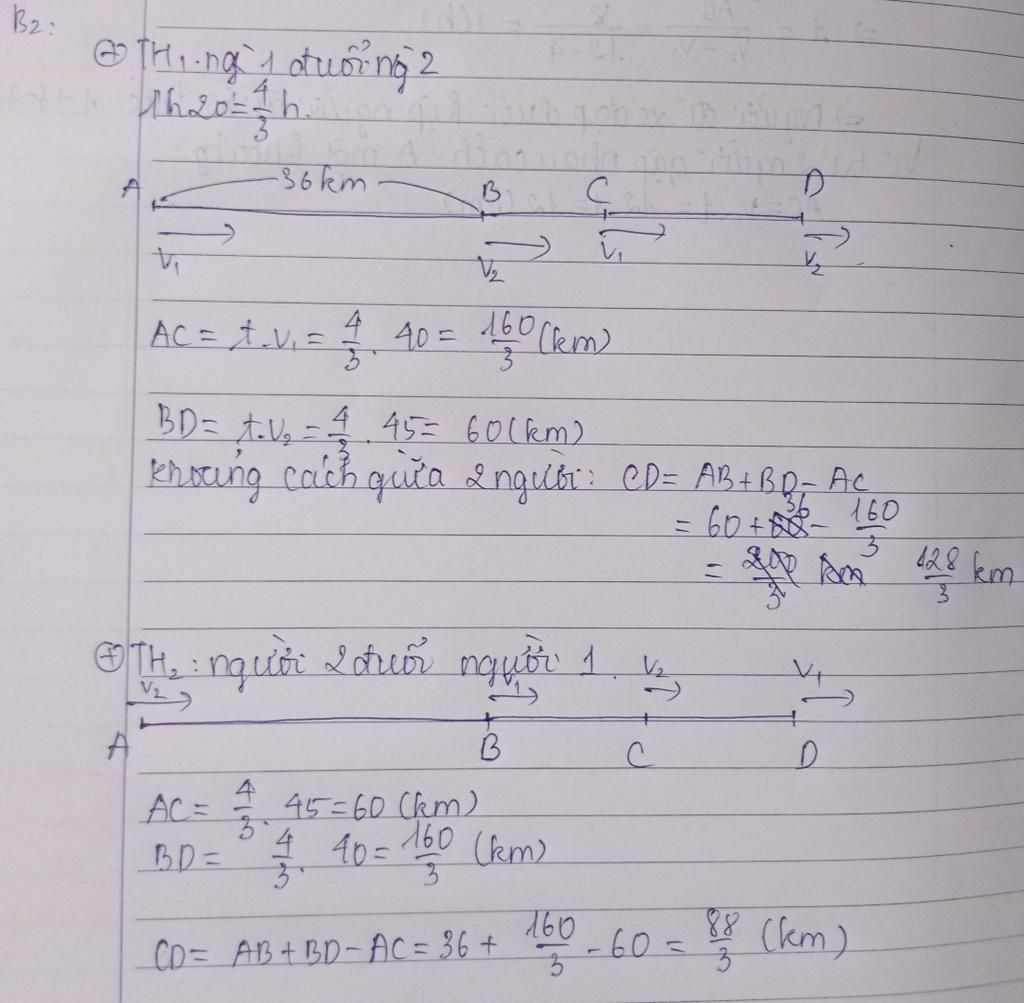 B2:
⊕ TH₁. ng` 1 đuổi ng` 2
1h20' = 4/3 h.
A 36km B C D
V₁ V₂ V₁ V₂
AC = t.V₁ = 4/3 . 40 = 160/3 (km)
BD = t.V₂ = 4/3 . 45 = 60 (km)
khoảng cách giữa 2 người: CD = AB + BD - AC
= 60 + 36 - 160/3
= 128/3 km
⊕ TH₂: người 2 đuổi người 1.
V₂ V₁ V₂ V₁
A B C D
AC = 4/3 . 45 = 60 (km)
BD = 4/3 . 40 = 160/3 (km)
CD = AB + BD - AC = 36 + 160/3 - 60 = 88/3 (km)